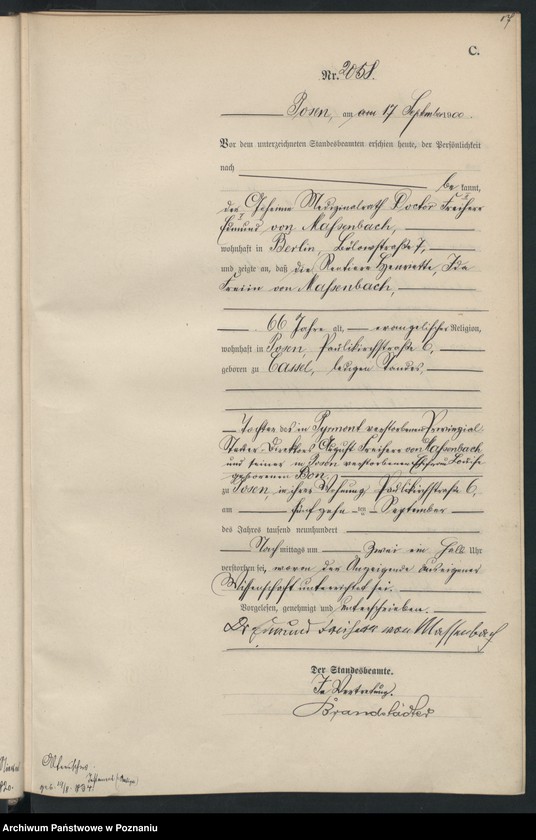 17
C.
Nr. 2058.
Posen, am am 17 September 1900.
Vor dem unterzeichneten Standesbeamten erschien heute, der Persönlichkeit
nach
be kannt,
der Geheime Medizinalrath Doctor Freiherr
Edmund von Massenbach,
wohnhaft in Berlin, Bülowstraße 7,
und zeigte an, daß die Rentiere Henriette, Ida
Freiin von Massenbach,
66 Jahre alt, evangelischer Religion,
wohnhaft in Posen, Paulikirchstraße 6,
geboren zu Cassel, ledigen Standes,
Tochter des in Pyrmont verstorbenen Provinzial
Steuer-Direktors August Freiherr von Massenbach
und seiner in Posen verstorbenen Ehefrau Louise
geborenen
zu Posen, in ihrer Wohnung Paulikirchstraße 6,
am fünfzehn ten September
des Jahres tausend neunhundert
Nach mittags um zwei ein halb Uhr
verstorben sei, wovon der Anzeigende aus eigener
Wissenschaft unterrichtet sei.
Vorgelesen, genehmigt und unterschrieben.
Dr Edmund Freiherr von Massenbach
Der Standesbeamte.
In Vertretung.
Brandstädter
Archiwum Państwowe w Poznaniu